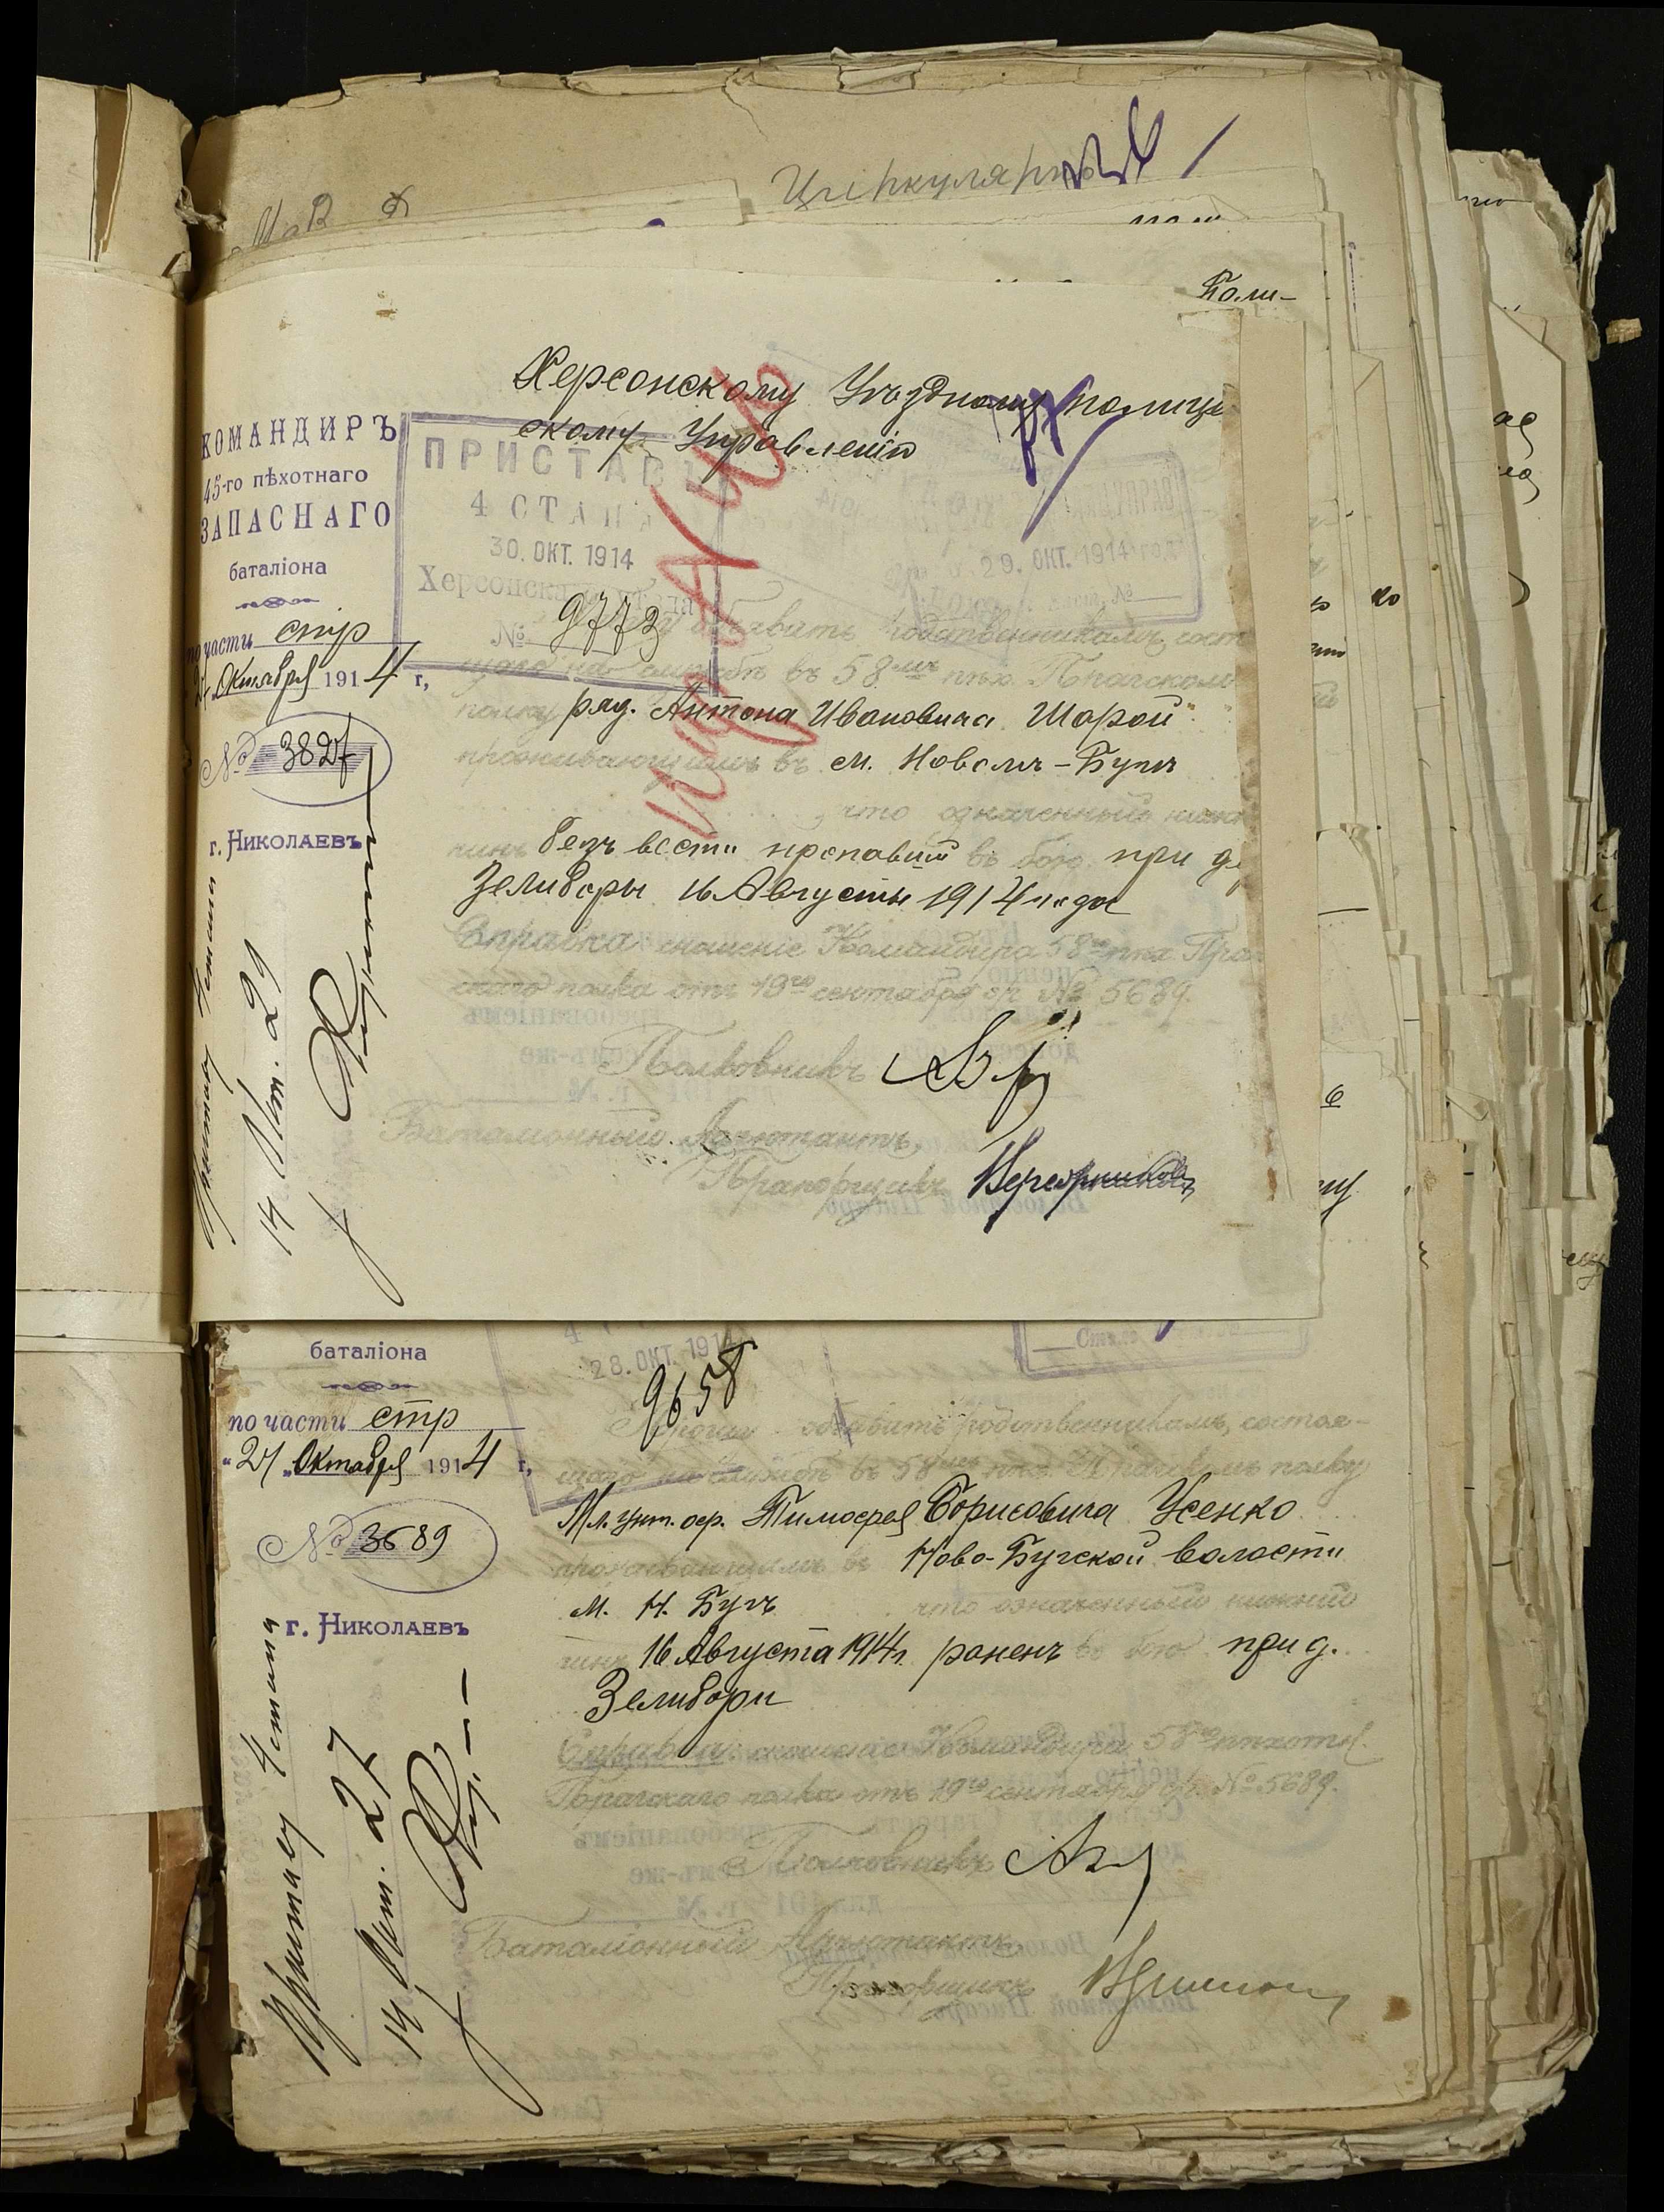 Циркулярно
Поли-
Херсонскому Уѣздному полице
скому Управленію
КОМАНДИРЪ
45-го пѣхотнаго
ЗАПАСНАГО
баталіона
по части стр
Октября 1914 г,
№ 3827
г. Николаевъ
ПРИСТАВЪ
4 СТАНА
30. ОКТ. 1914
Херсонскаго уѣзда
№ 9773
29. ОКТ. 1914 год
объявить родственникамъ, сост
щаго на службѣ въ 58мъ пѣх. Прагском
полку ряд. Антона Ивановича Шарой
проживающимъ въ м. Новомъ-Бугѣ
, что означенный нижн
чинъ безъ вести пропавшій въ бою при д.
Зелиборы 16 Августа 1914 года
Справка: сношеніе Командира 58го пѣх. Праг
скаго полка отъ 19го сентября с/г. № 5689.
Полковникъ
Баталіонный Адъютантъ,
Прапорщикъ
Приставу 4 стана
14 Окт. 29
баталіона
по части стр
"27" Октября 1914 г,
№ 3689
г. Николаевъ
28. ОКТ. 1914
9658
Прошу объявить родственникамъ, состоя-
щаго на службѣ въ 58мъ пѣх. Прагскомъ полку
Мл. унт. оф. Тимофея Борисовича Усенко
проживающимъ въ Ново-Бугской волости
м. Н. Бугъ что означенный нижній
чинъ 16 Августа 1914 г. раненъ въ бою при д.
Зелибори
Справка: сношеніе Командира 58го пѣхотн.
Прагскаго полка отъ 19го сентября с/г. № 5689.
Полковникъ
Баталіонный Адъютантъ,
Прапорщикъ
Приставу 4 стана
14 Окт. 27